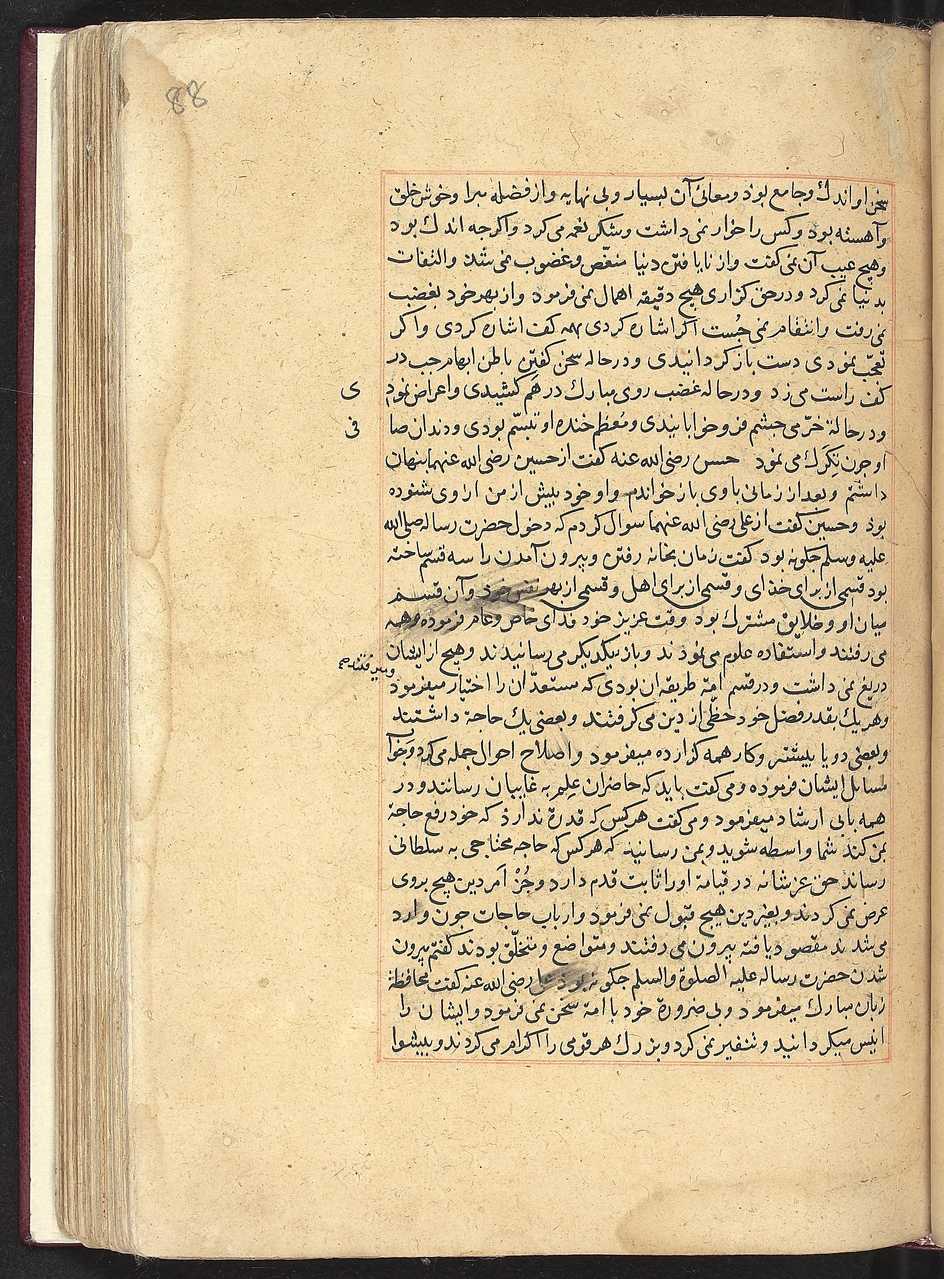 88
سخن او اندك و جامع بوذ و معانئ آن بسیار و بی نهایه و از فضله مبرا و خوش خلق
و آهسته بوذ و کس را خوار نمی داشت و شکر نعمه می کرد و اکرجه اندك بوذ
و هیچ عیب آن نمی کفت و از نایافتن دنیا منغّص و غضوب نمی شد و التفات
بدنیا نمی کرد و در حق کزاری هیچ دقیقه اهمال نمی فرمود و از بهر خود بغضب
نمی رفت و انتقام نمی جُست اکر اشاره کردی بهمه کف اشاره کردی و اکر
تعجّب نمودی دست باز کردانیدی و در حاله سخن کفتن باطن ابهام جب در
کف راست می زد و در حاله غضب روی مبارك در هَم کشیدی و اعراض نمود
ی
و در حالة خرّمی جشم فرو خوابانیدی و مُعظَم خنده او تبسّم بودی و دندان صا
فی
او جون تِکَرك می نمود حسن رضی الله عنه کفت از حسین رضی الله عنهما پنهان
داشتم و بعد از زمانی با وی باز خواندم و او خود بیش از من از وی شنوده
بوذ و حسین کفت از علی رضی الله عنهما سوال کردم که دخول حضرت رساله صلی الله
علیه وسلم جکونه بود کفت زمان بخانه رفتن و بیرون آمدن را سه قسم ساخته
بود قسمی از برای خذای و قسمی از برای اهل و قسمی از بهر نفس خود و آن قسم
میان او و خلایق مشترك بود وقت عزیز خود فدای خاص و عام فرموده و همه
می رفتند و استفاده علوم می نمودند و باز بیکدیکر می رسانیدند و هیچ از ایشان
دریغ نمی داشت و در قسم امّة طریقه آن بودی که مستعدّان را اختیار میفرمود
و هریك بقدر فضل خود حظّی از دین می کرفتند و بعضی یك حاجة داشتند
و بعضی دو یا بیشتر و کار همه کزارده میفرمود و اصلاح احوال جمله می کرد و جَوا
مسایل ایشان فرموده و می کفت باید که حاضران عِلم به غایبان رسانند و در
همه بابی ارشاد میفرمود و می کفت هرکس که قدرة ندارذ که خود رفع حاجة
بمن کند شما واسطه شوید و بمن رسانید که هرکس که حاجه محتاجی به سلطانی
رساند حق عز شانه در قیامة او را ثابت قدم دارد و جُز اَمر دین هیچ بر وی
عرض نمی کردند و بغیر دین هیچ قبول نمی فرمود و ارباب حاجات جون وارد
می شدند مقصود یافته بیرون می رفتند و متواضع و متخلّق بودند کفتم بیرون
شدن حضرت رساله علیه الصلوة والسلم جکونه بوذ رضی الله عنه کفت محافظة
زبان مبارك میفرمود و بی ضرورة خود با امة سخن نمی فرمود و ایشان را
انیس میکردانید و تنفیر نمی کرد و بزرك هر قومی را اکرام می کردند و بیشوا